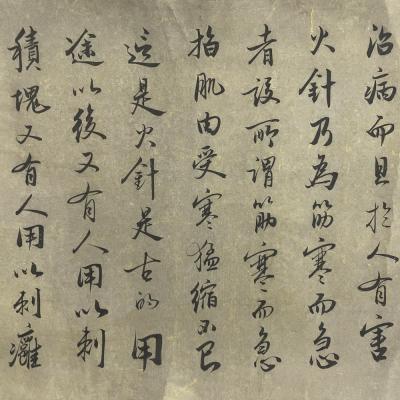 治病而且於人有害
火針乃為筋寒而急
者設所謂筋寒而急
指肌肉受寒猛縮不已
這是火針是古的用
途以後又有人用以刺
積塊又有人用以刺癱